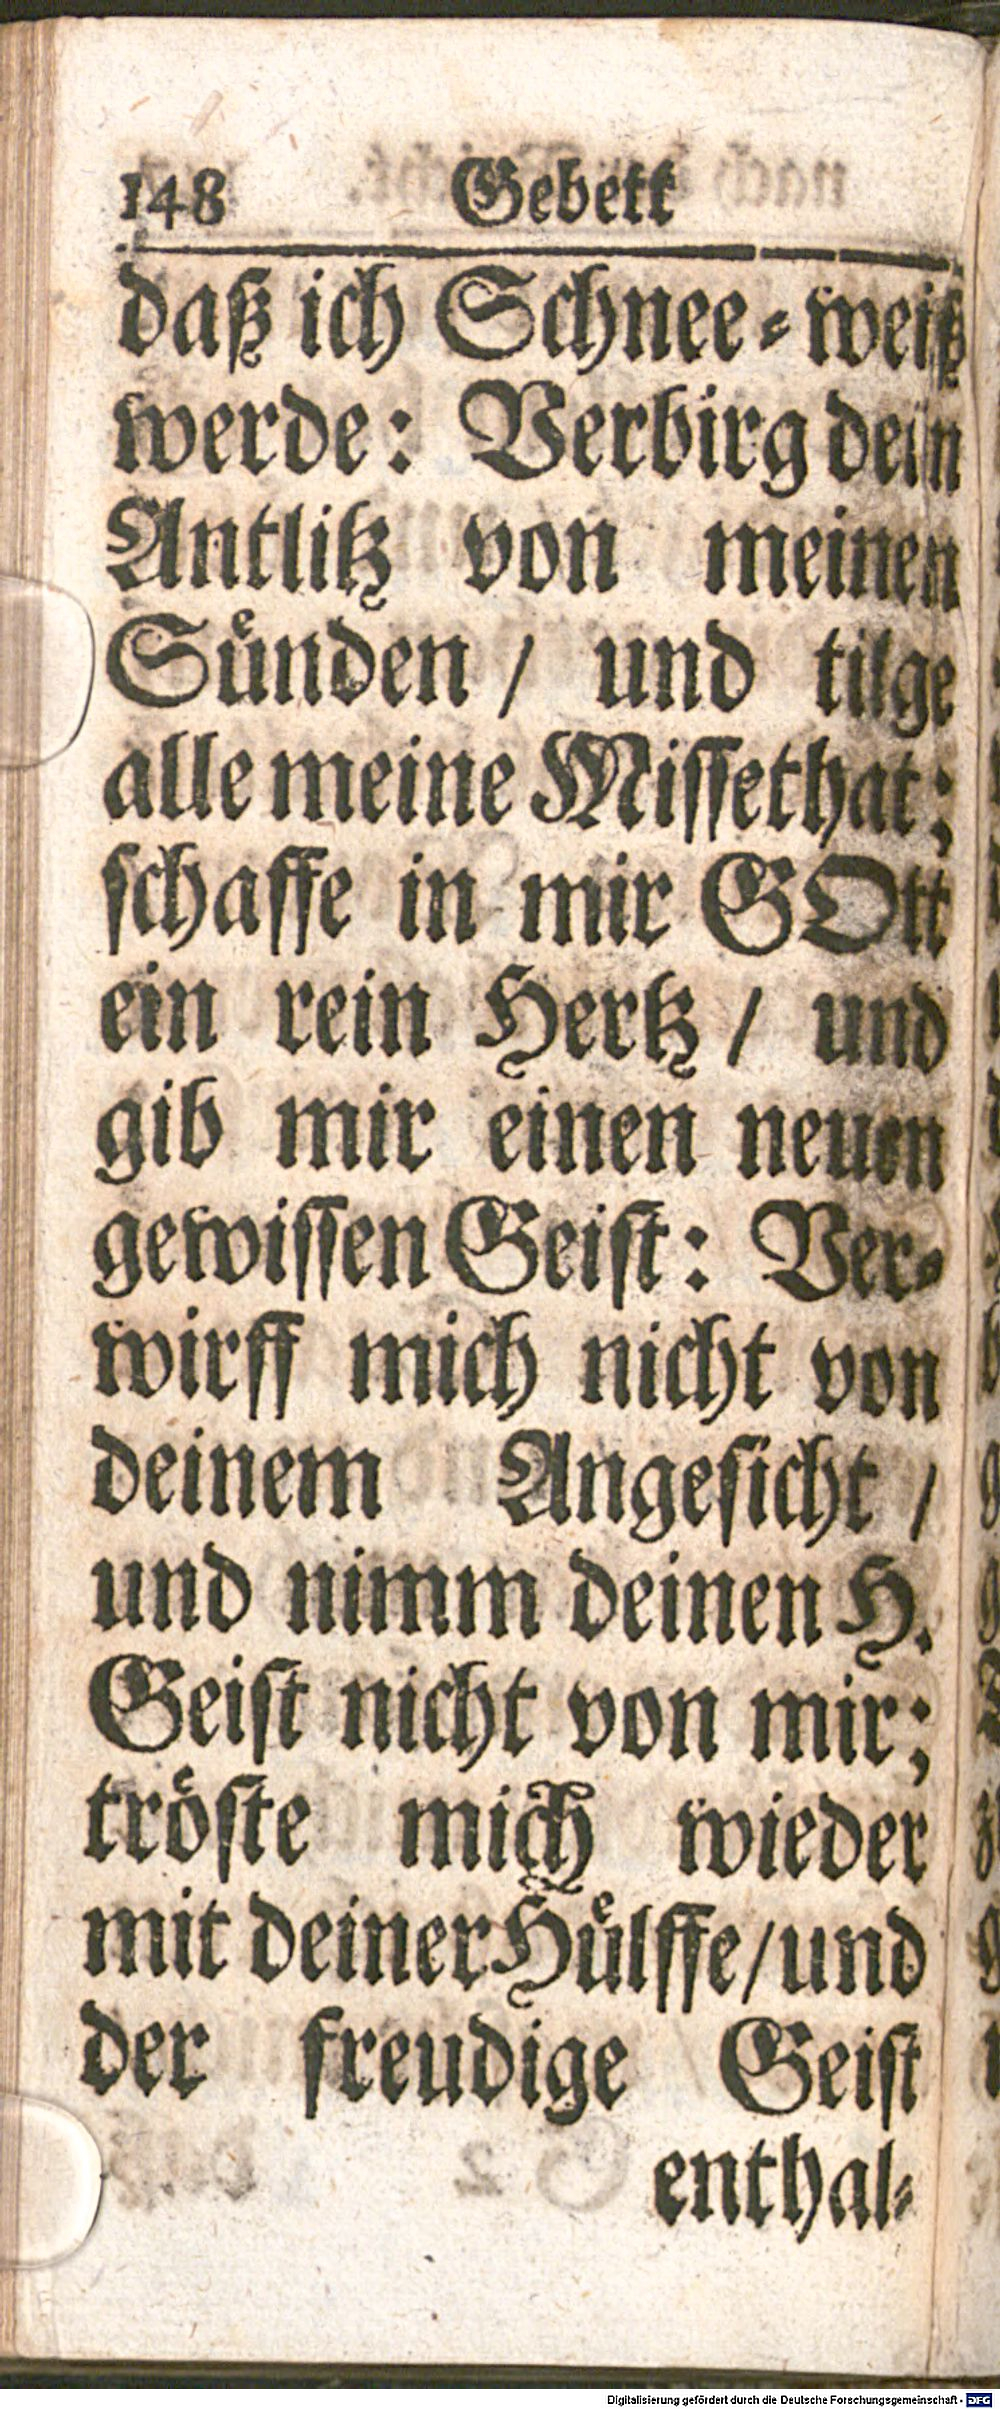 148 Gebett
daß ich Schnee-weiß
werde: Verbirg dein
Antlitz von meinen
Suͤnden / und tilge
alle meine Missethat;
schaffe in mir GOtt
ein rein Hertz / und
gib mir einen neuen
gewissen Geist: Ver-
wirff mich nicht von
deinem Angesicht /
und nimm deinen H.
Geist nicht von mir;
troͤste mich wieder
mit deiner Huͤlffe / und
der freudige Geist
enthal-
Digitalisierung gefördert durch die Deutsche Forschungsgemeinschaft - DFG